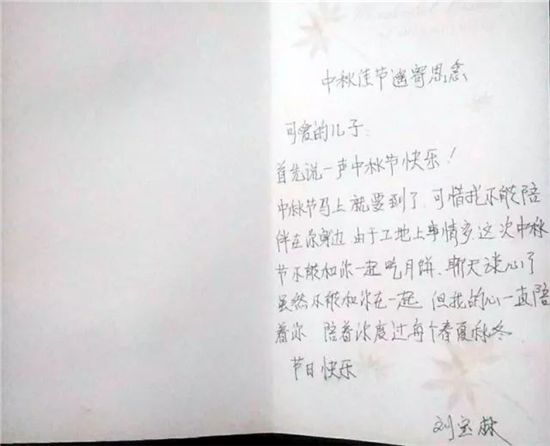 中秋佳节遥寄思念
可爱的儿子：
首先说一声中秋节快乐！
中秋节马上就要到了，可惜我不能陪
伴在你身边，由于工地上事情多，这次中秋
节不能和你一起吃月饼，聊天谈心了
虽然不能和你在一起，但我的心一直陪
着你 陪着你度过每个春夏秋冬
节日快乐
刘宝林